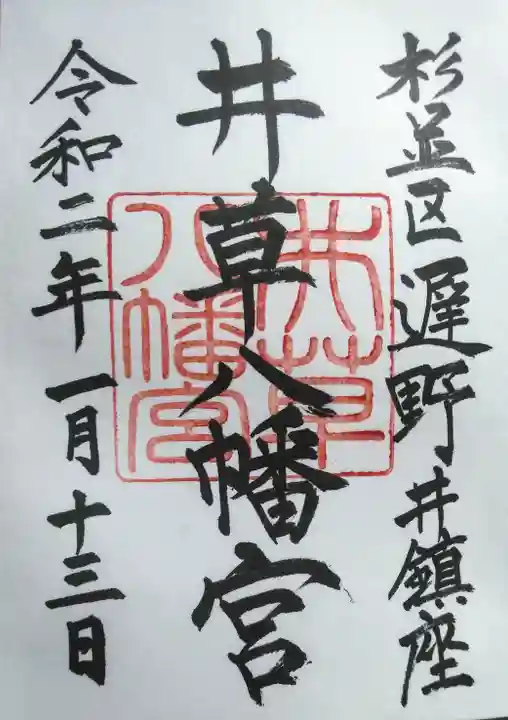 杉並区遅野井鎮座
井草八幡宮
井草八幡宮
令和二年一月十三日